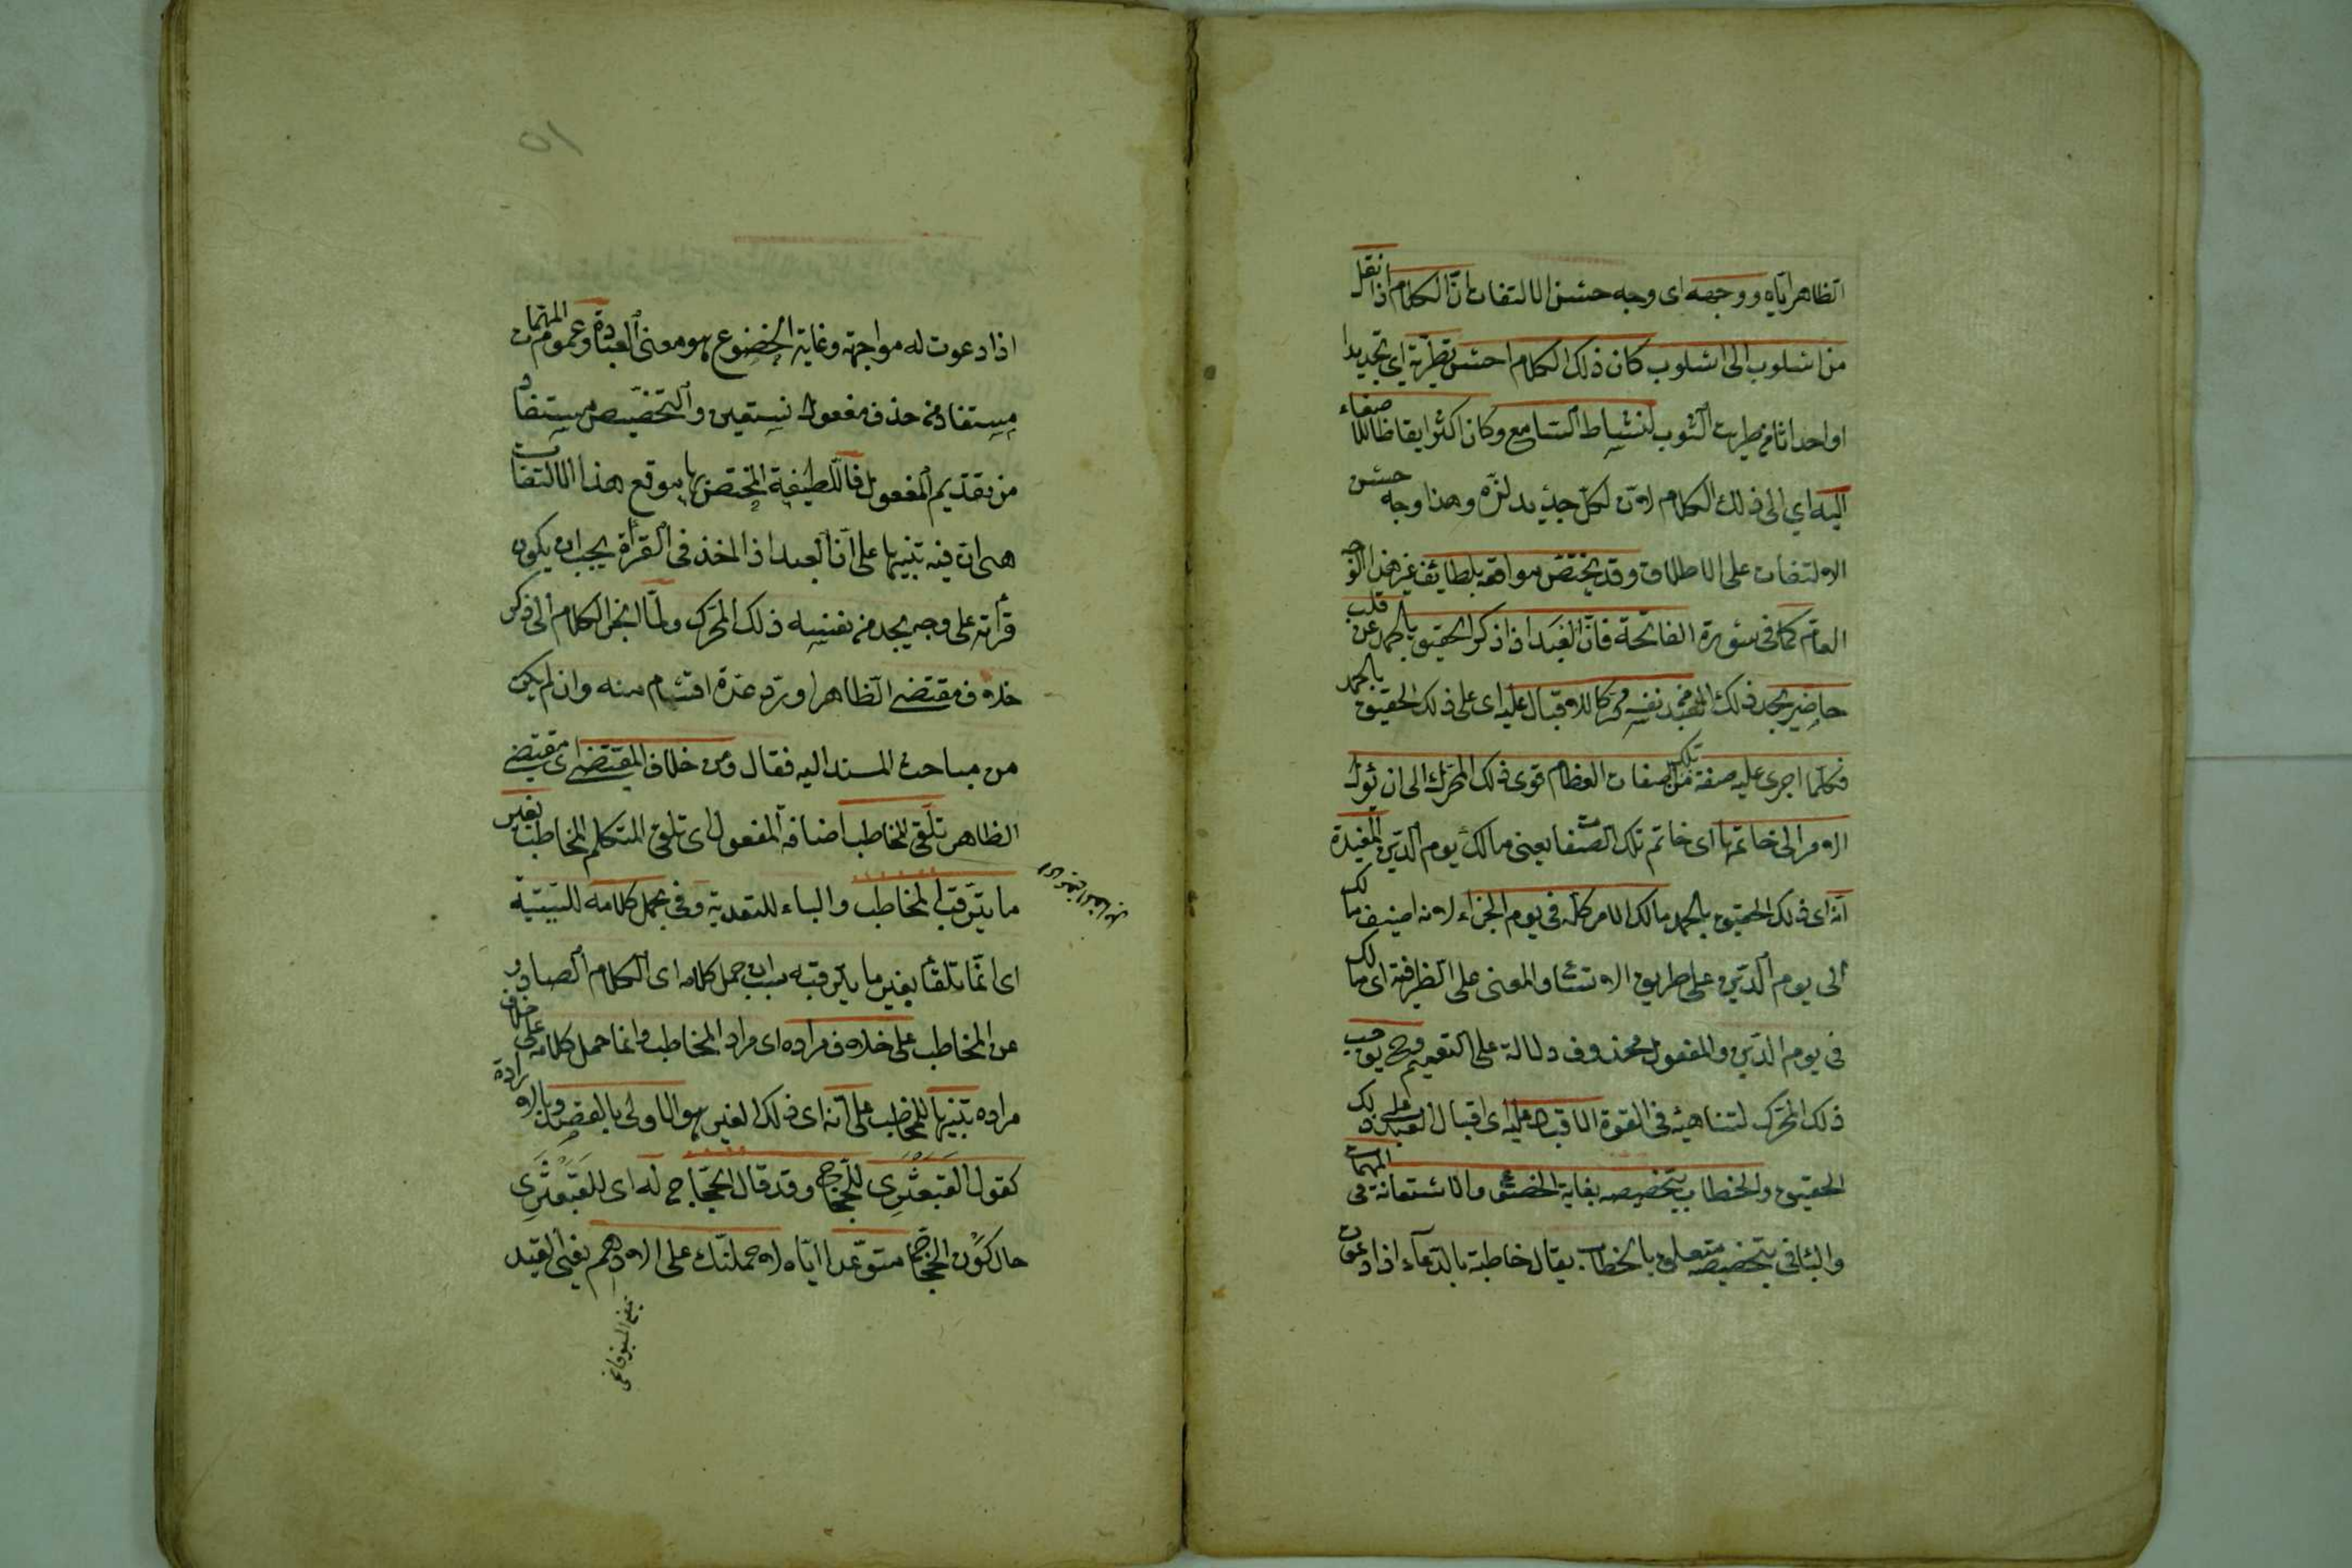 الظاهر اياه ووجهه اى وجه حسن الالتفات ان الكلام اذا نقل
من اسلوب الى اسلوب كان ذلك الكلام احسن تطرية اى تجديدا
او احداثا من طريت الثوب لنشاط السامع وكان اكثر ايقاظا للاصغاء
اليه اي الى ذلك الكلام لان لكل جديد لذة وهذا وجه حسن
الالتفات على الاطلاق وقد يختص مواقعه بلطايف غير هذا الوجه
العام كما فى سورة الفاتحة فان العبد اذا ذكر الحقيق بالحمد عن قلب
حاضر يجد ذلك العبد من نفسه محركا للاقبال عليه اى على ذلك الحقيق بالحمد
فكلما اجرى عليه صفة من تلك الصفات العظام قوى ذلك المحرك الى ان يؤل
الامر الى خاتمتها اى خاتم تلك الصفات يعنى مالك يوم الدين المفيدة
انه اى ذلك الحقيق بالحمد مالك الامر كله فى يوم الجزاء لانه اضيف مالك
الى يوم الدين على طريق الاتساع والمعنى على الظرفية اى مالك
فى يوم الدين والمفعول محذوف دلالة على التعميم فح يوجب
ذلك المحرك لتناهيه فى القوة الاقبال عليه اى اقبال العبد على ذلك
الحقيق والخطاب بتخصيصه بغاية الخضوع والاستعانة فى المهمات
والباء فى بتخصيصه متعلق بالخطاب يقال خاطبة بالدعاء اذا دعوت
اذا دعوت له مواجهة وغاية الخضوع هو معنى العبادة وعموم المهمات
مستفاد من حذف مفعول نستعين والتخصيص مستفاد
من تقديم المفعول فاللطيفة المختص بها موقع هذا الالتفات
هى ان فيه تنبيها على ان العبد اذا اخذ فى القرأة يجب ان يكون
قرأته على وجه يجد من نفسه ذلك المحرك ولما انجر الكلام الى ذكر
خلاف مقتضى الظاهر اورد عدة اقسام منه وان لم يكن
من مباحث المسند اليه فقال ومن خلاف المقتضى اى مقتضى
الظاهر تلقى المخاطب اضافة المفعول اى تلقى المتكلم المخاطب بغير
ما يترقب المخاطب والباء للتعدية وفى بحمل كلامه للسببية
اى انما تلقا بغير ما يترقبه بسبب ان حمل كلامه اى الكلام الصادر
عن المخاطب على خلاف مراده اى مراد المخاطب وانما حمل كلامه على خلاف
مراده تنبيها للمخاطب على انه اى ذلك الغير هو الاولى بالقصد وبالارادة
كقول القبعثرى للحجاج وقد قال الحجاج له اى للقبعثرى
حال كون الحجاج متوعدا اياه لاحملنك على الادهم يعنى القيد